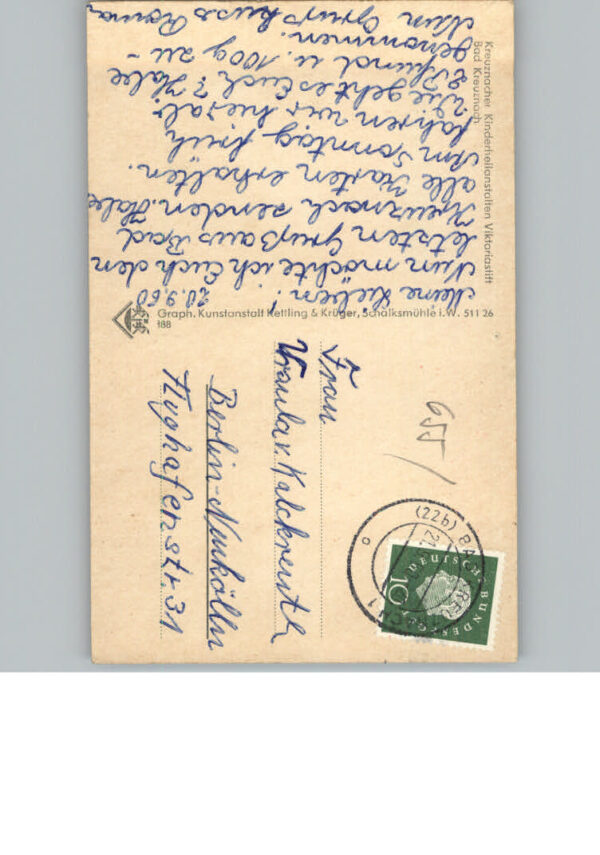 Kreuznacher Kinderheilanstalten Viktoriastift
Bad Kreuznach
20.9.60
Meine Lieben!
Nun möchte ich Euch den
letzten Gruß aus Bad
Kreuznach senden. Habe
alle Karten erhalten.
Am Sonntag früh
fahren wir hier ab.
Wie geht es Euch? Habe
2 Pfund u. 100g zu-
genommen.
Nun Gruß Kuss
Graph. Kunstanstalt Kettling & Krüger, Schalksmühle i.W. 511 26
188
655
(22b) BAD KREUZNACH 1
DEUTSCHE BUNDESPOST
10
Frau
Ursula v. Kalckreuth
Berlin-Neukölln
Flughafenstr. 31